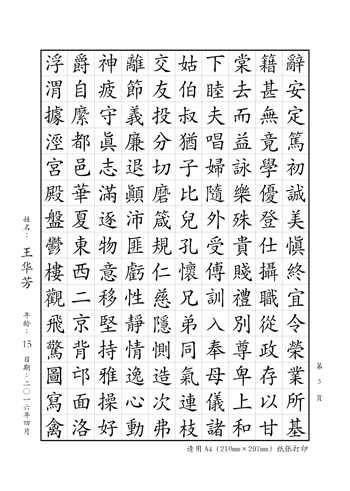 辭安定篤初誠美愼終宜令榮業所基
籍甚無竟學優登仕攝職從政存以甘
棠去而益詠樂殊貴賤禮別尊卑上和
下睦夫唱婦隨外受傅訓入奉母儀諸
姑伯叔猶子比兒孔懷兄弟同氣連枝
交友投分切磨箴規仁慈隱惻造次弗
離節義廉退顛沛匪虧性靜情逸心動
神疲守眞志滿逐物意移堅持雅操好
爵自縻都邑華夏東西二京背邙面洛
浮渭據涇宮殿盤鬱樓觀飛驚圖寫禽
姓名：王华芳 年龄：15 日期：二〇一六年四月
第 3 页
请用A4（210mm×297mm）纸张打印